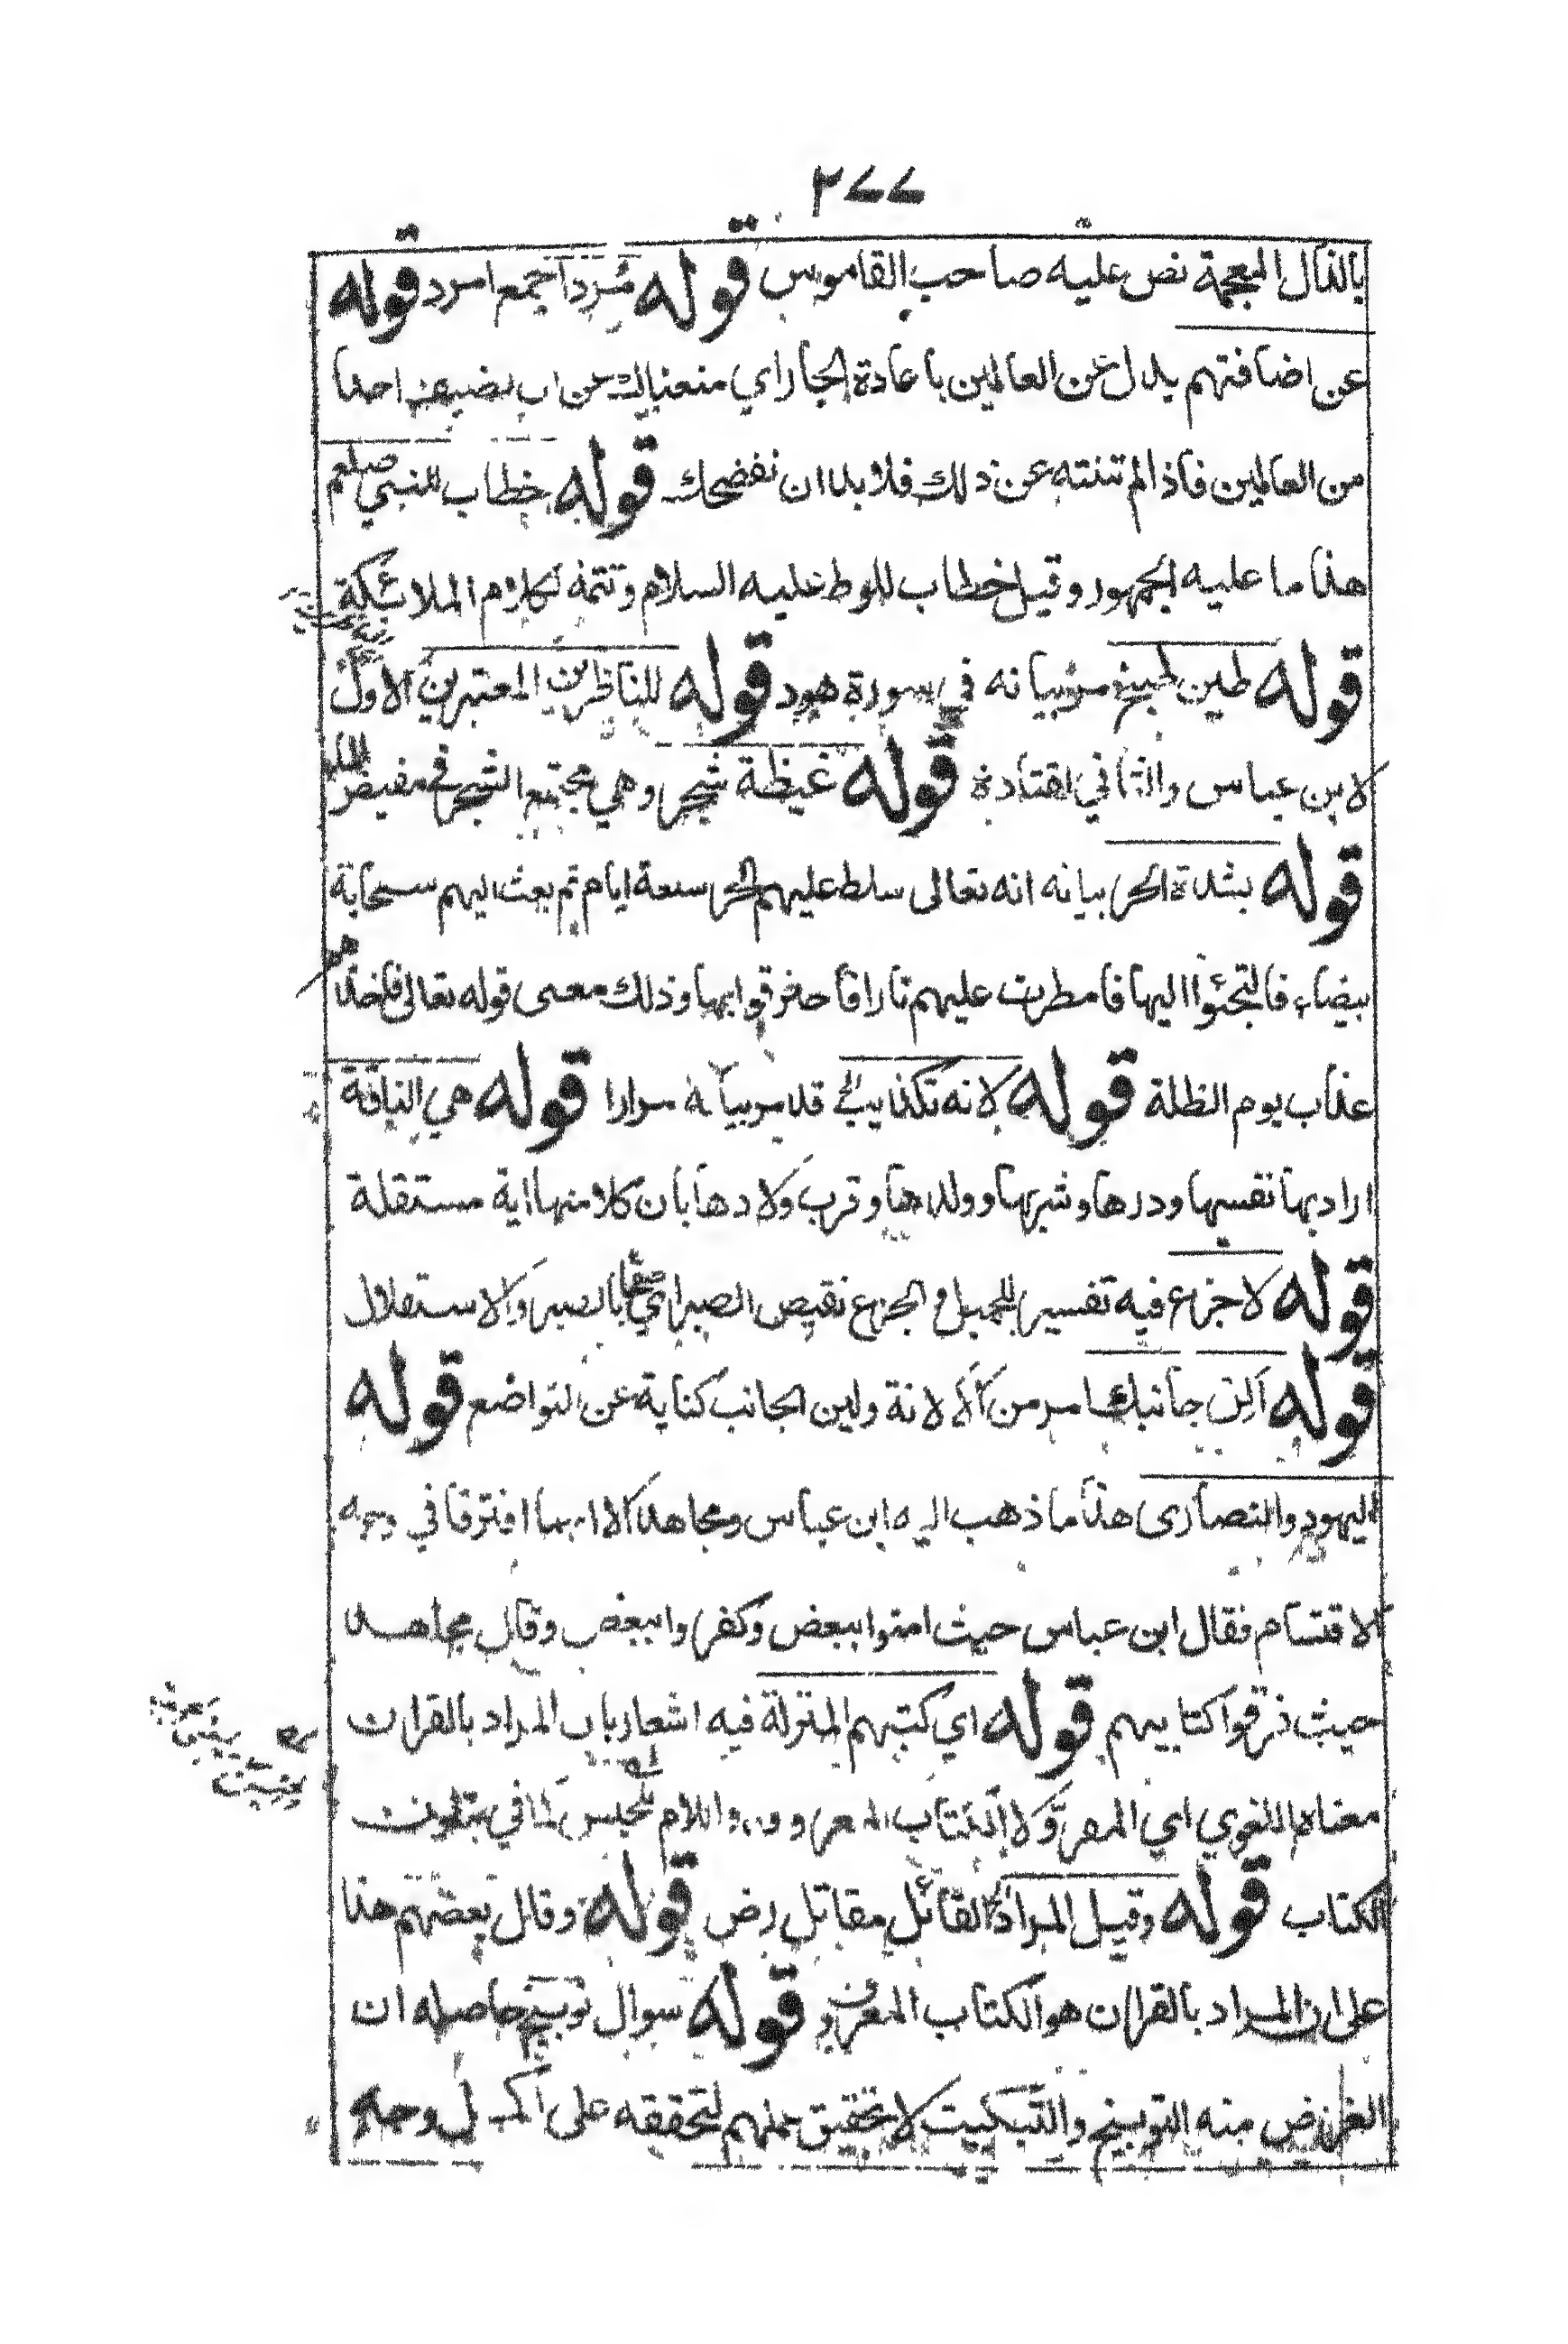 ٢٧٧
بالذال المعجمة نص عليه صاحب القاموس قوله مُردا جمع امرد قوله
عن اضافتهم بدل عن العالمين باعادة الجار اي منعناك عن ان تضيف احدا
من العالمين فاذا لم تنته عن ذلك فلا بد ان نفضحك قوله خطاب للنبي صلعم
هذا ما عليه الجمهور وقيل خطاب للوط عليه السلام وتتمة لكلام الملائكة
قوله طين طبخ مر بيانه في سورة هود قوله للناظرين المعتبرين الاول
لابن عباس والثاني لقتادة قوله غيظة شجر وهي مجتمع الشجر في مفيض الماء
قوله بشدة الحر بيانه انه تعالى سلط عليهم الحر سبعة ايام ثم بعث اليهم سحابة
بيضاء فالتجئوا اليها فامطرت عليهم نارا فاحترقوا بها وذلك معنى قوله تعالى فاخذهم
عذاب يوم الظلة قوله لانه تكذيب الخ قد مر بيانه مرارا قوله هي الناقة
اراد بها نفسها ودرها وشربها وولدها وقرب ولادها بان كلا منها اية مستقلة
قوله لا جزع فيه تفسير للجميل و الجزع نقيض الصبر اي صفحا بالصبر والاستقلال
قوله الن جانبك امر من الالانة ولين الجانب كناية عن التواضع قوله
اليهود والنصارى هذا ما ذهب اليه ابن عباس ومجاهد الا انهما افترقا في وجه
الاقتسام فقال ابن عباس حيث امنوا ببعض وكفروا ببعض وقال مجاهد
حيث فرقوا كتابهم قوله اي كتبهم المنزلة فيه اشعار بان المراد بالقران
معناه اللغوي اي المقرؤ لا الكتاب المعروف واللام للجنس لما في
الكتاب قوله وقيل المراد القائل مقاتل رض قوله وقال بعضهم هذا
على ان المراد بالقران هو الكتاب المعروف قوله سوال توبيخ حاصله ان
الغرض منه التوبيخ والتبكيت لا تحقيق عملهم لتحققه على اكمل وجه